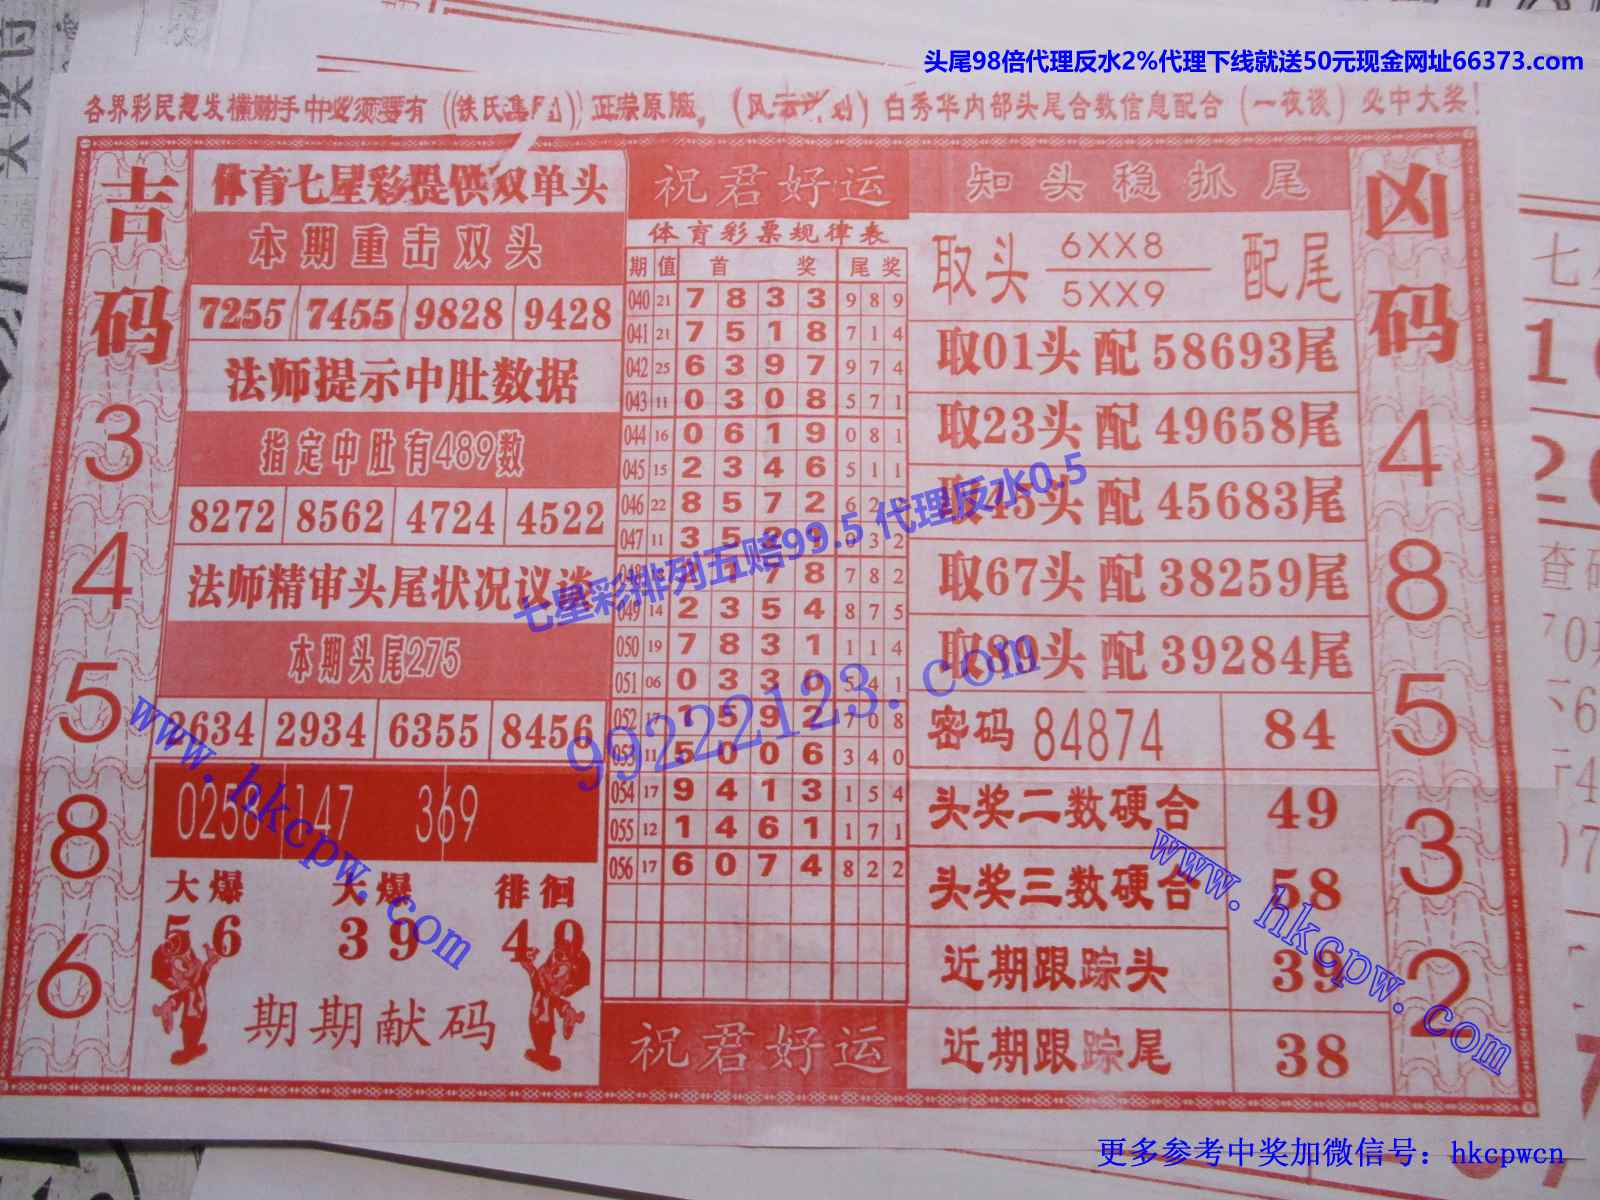 头尾98倍代理反水2%代理下线就送50元现金网址66373.com
各界彩民想发横财手中必须要有《铁氏集团》正宗原版，(风云计划)白秀华内部头尾合数信息配合(一夜谈)必中大奖！
吉码
3
4
5
8
6
体育七星彩提供双单头
本期重击双头
7255 7455 9828 9428
法师提示中肚数据
指定中肚有489数
8272 8562 4724 4522
法师精审头尾状况议谈
本期头尾275
2634 2934 6355 8456
0258 147 369
大爆 大爆 徘徊
56 39 49
期期献码
祝君好运
体育彩票规律表
期 值 首 奖 尾 奖
040 21 7 8 3 3 9 8 9
041 21 7 5 1 8 7 1 4
042 25 6 3 9 7 9 7 4
043 11 0 3 0 8 5 7 1
044 16 0 6 1 9 0 8 1
045 15 2 3 4 6 5 1 1
046 22 8 5 7 2 6 2
047 11 3 5 2 1 3 2
7 8 7 8 2
049 14 2 3 5 4 8 7 5
050 19 7 8 3 1 1 1 4
051 06 0 3 3 0 5 4 1
052 17 1 5 9 2 7 0 8
053 11 5 0 0 6 3 4 0
054 17 9 4 1 3 1 5 4
055 12 1 4 6 1 1 7 1
056 17 6 0 7 4 8 2 2
祝君好运
知头稳抓尾
取头 6XX8 配尾
5XX9
取01头 配 58693尾
取23头 配 49658尾
取45头 配 45683尾
取67头 配 38259尾
取89头 配 39284尾
密码 84874 84
头奖二数硬合 49
头奖三数硬合 58
近期跟踪头 39
近期跟踪尾 38
凶码
4
8
5
3
2
七星彩排列五赔99.5 代理反水0.5
99222123.com
www.hkcpw.com
www.hkcpw.com
更多参考中奖加微信号：hkcpwcn